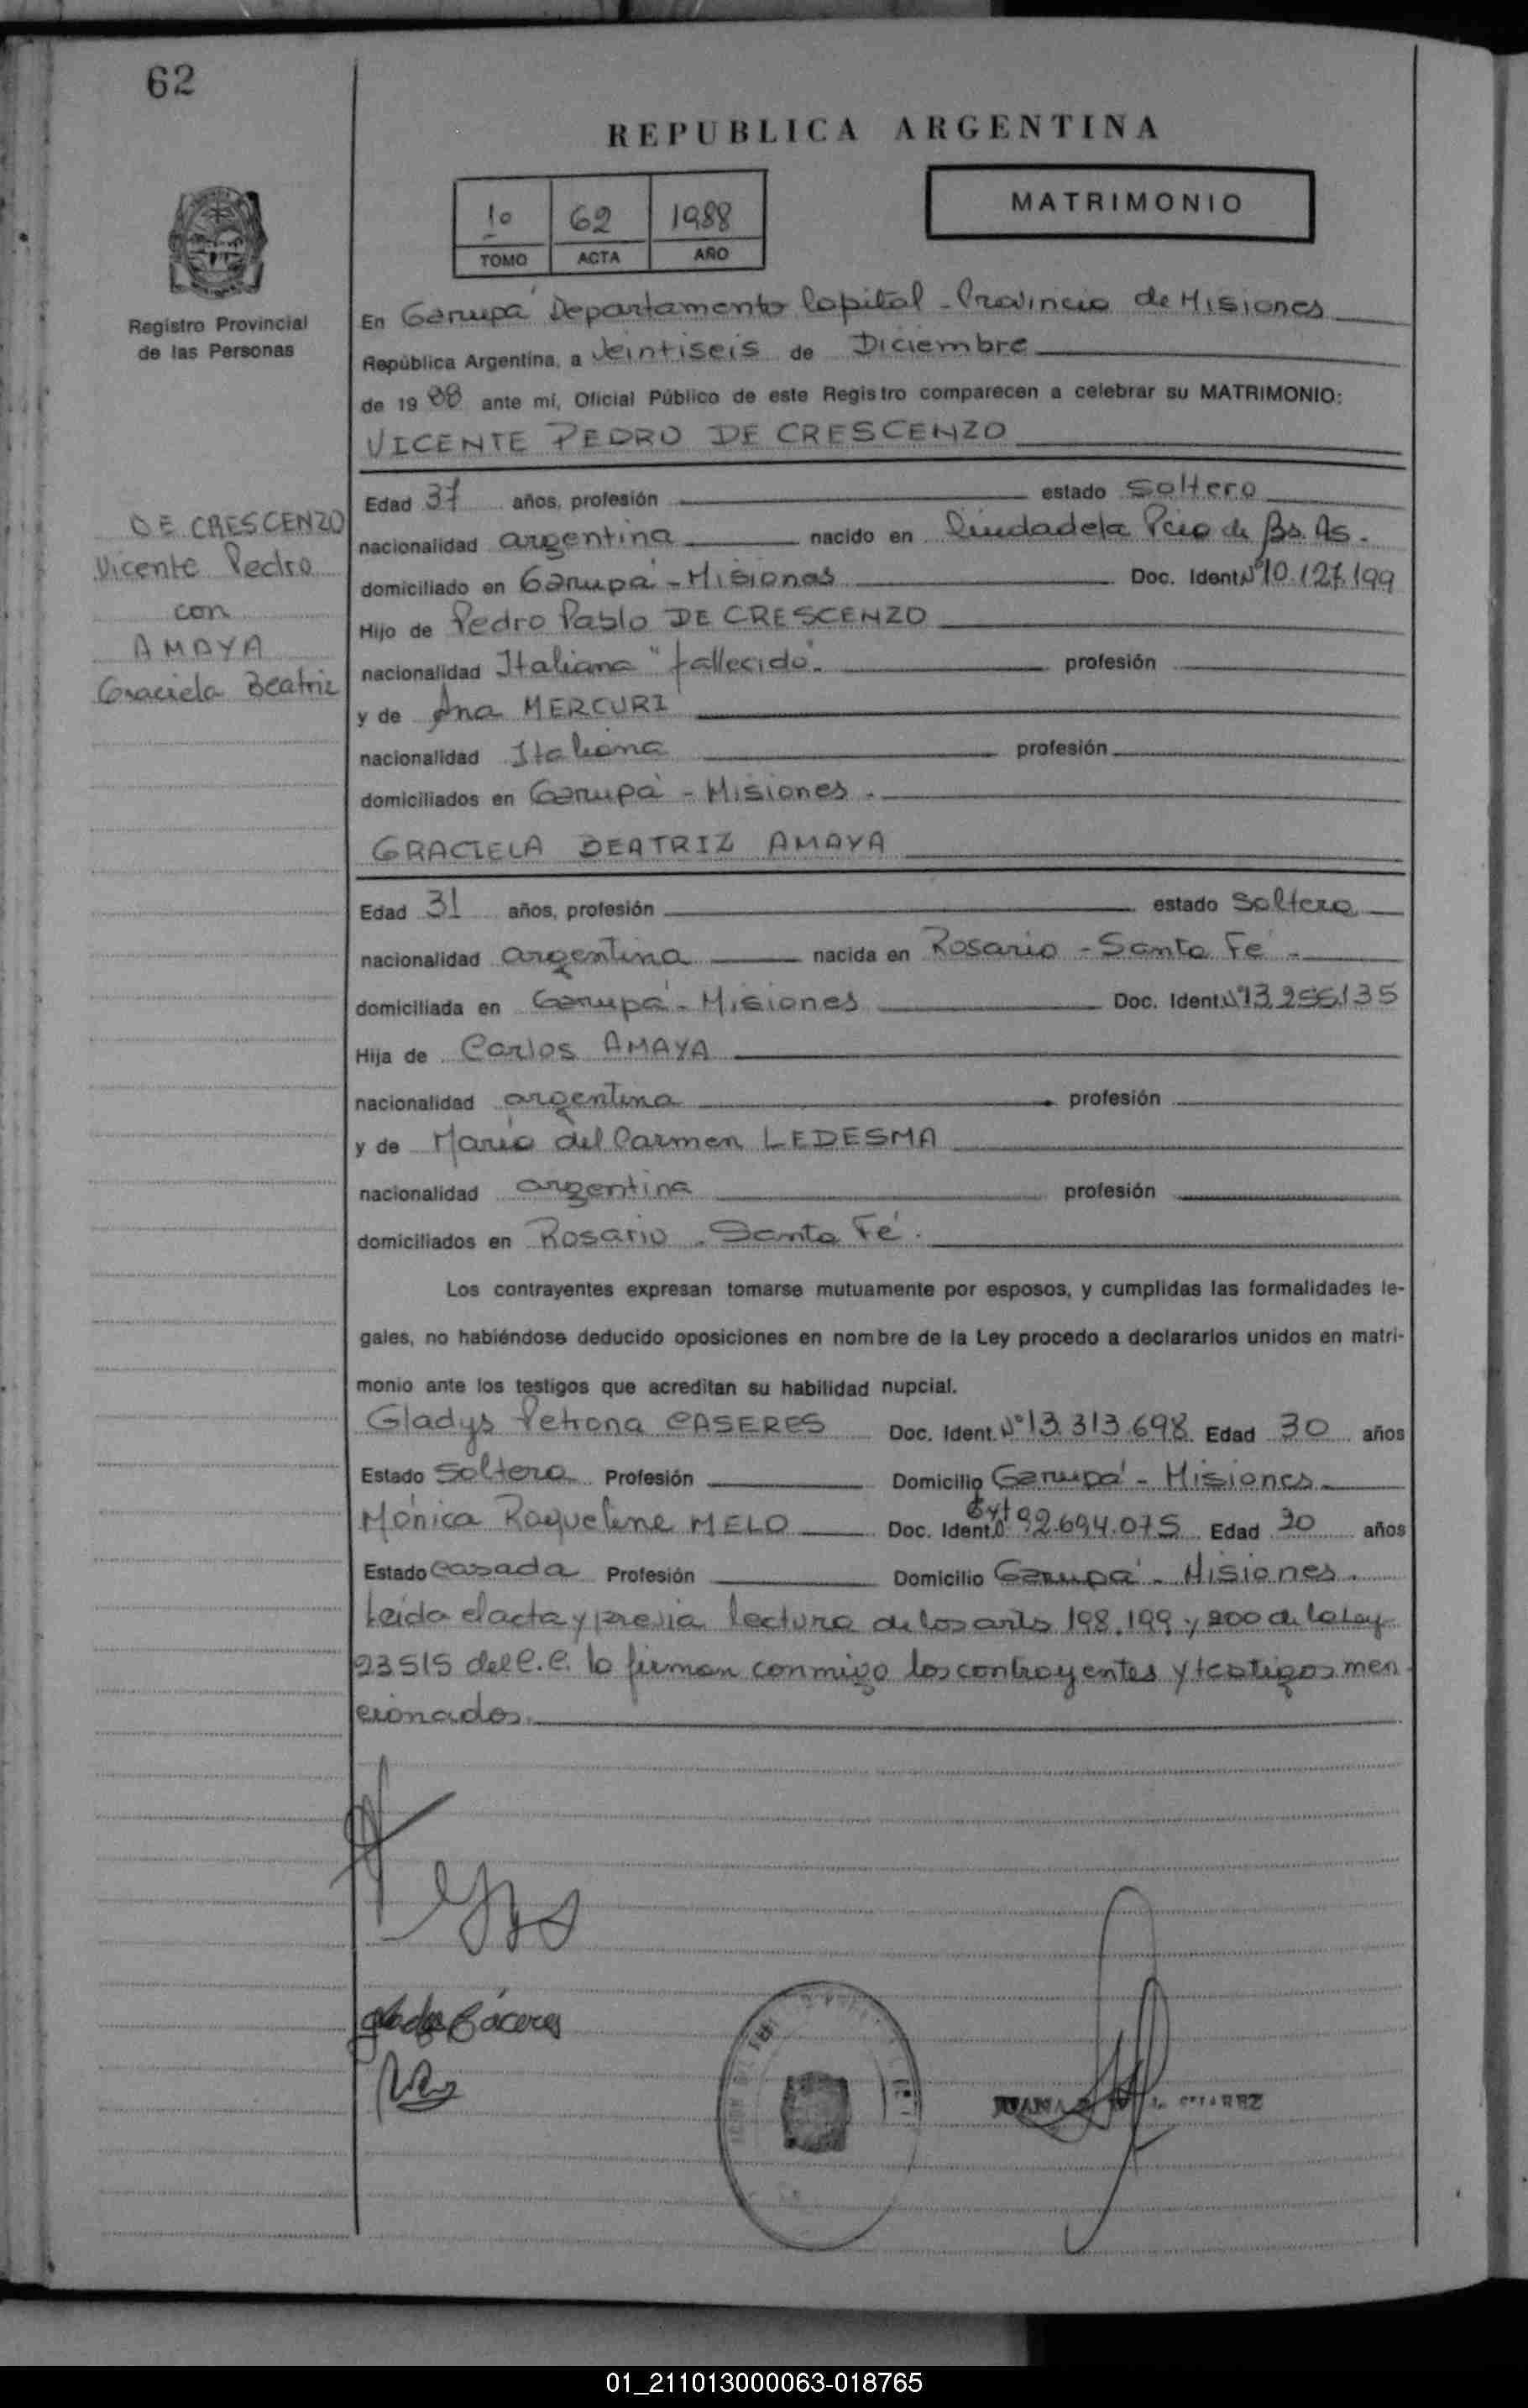 62
REPUBLICA ARGENTINA
1º 62 1988
TOMO ACTA AÑO
MATRIMONIO
Registro Provincial
de las Personas
En Garupá Departamento Capital - Provincia de Misiones
República Argentina, a Veintiseis de Diciembre
de 1988 ante mí, Oficial Público de este Registro comparecen a celebrar su MATRIMONIO:
VICENTE PEDRO DE CRESCENZO
DE CRESCENZO
Vicente Pedro
con
AMAYA
Graciela Beatriz
Edad 37 años, profesión estado Soltero
nacionalidad argentina nacido en Ciudadela Pcia de Bs. As.
domiciliado en Garupá - Misiones Doc. Ident. Nº 10.127.199
Hijo de Pedro Pablo DE CRESCENZO
nacionalidad Italiana "fallecido". profesión
y de Ana MERCURI
nacionalidad Italiana profesión
domiciliados en Garupá - Misiones.
GRACIELA BEATRIZ AMAYA
Edad 31 años, profesión estado Soltera
nacionalidad argentina nacida en Rosario - Santa Fé.
domiciliada en Garupá - Misiones Doc. Ident. Nº 13.255.135
Hija de Carlos AMAYA
nacionalidad argentina profesión
y de María del Carmen LEDESMA
nacionalidad argentina profesión
domiciliados en Rosario . Santa Fé.
Los contrayentes expresan tomarse mutuamente por esposos, y cumplidas las formalidades le-
gales, no habiéndose deducido oposiciones en nombre de la Ley procedo a declararlos unidos en matri-
monio ante los testigos que acreditan su habilidad nupcial.
Gladys Petrona CASERES Doc. Ident. Nº 13.313.698 Edad 30 años
Estado Soltera Profesión Domicilio Garupá - Misiones
Mónica Raquelene MELO Doc. Ident. Ext 92.694.075 Edad 20 años
Estado Casada Profesión Domicilio Garupá - Misiones.
Leida el acta y previa lectura de los arts 198.199 y 200 de la Ley
23515 del C.C. lo firman conmigo los contrayentes y testigos men
cionados.
Gladys Cáceres
JUANA
01_211013000063-018765